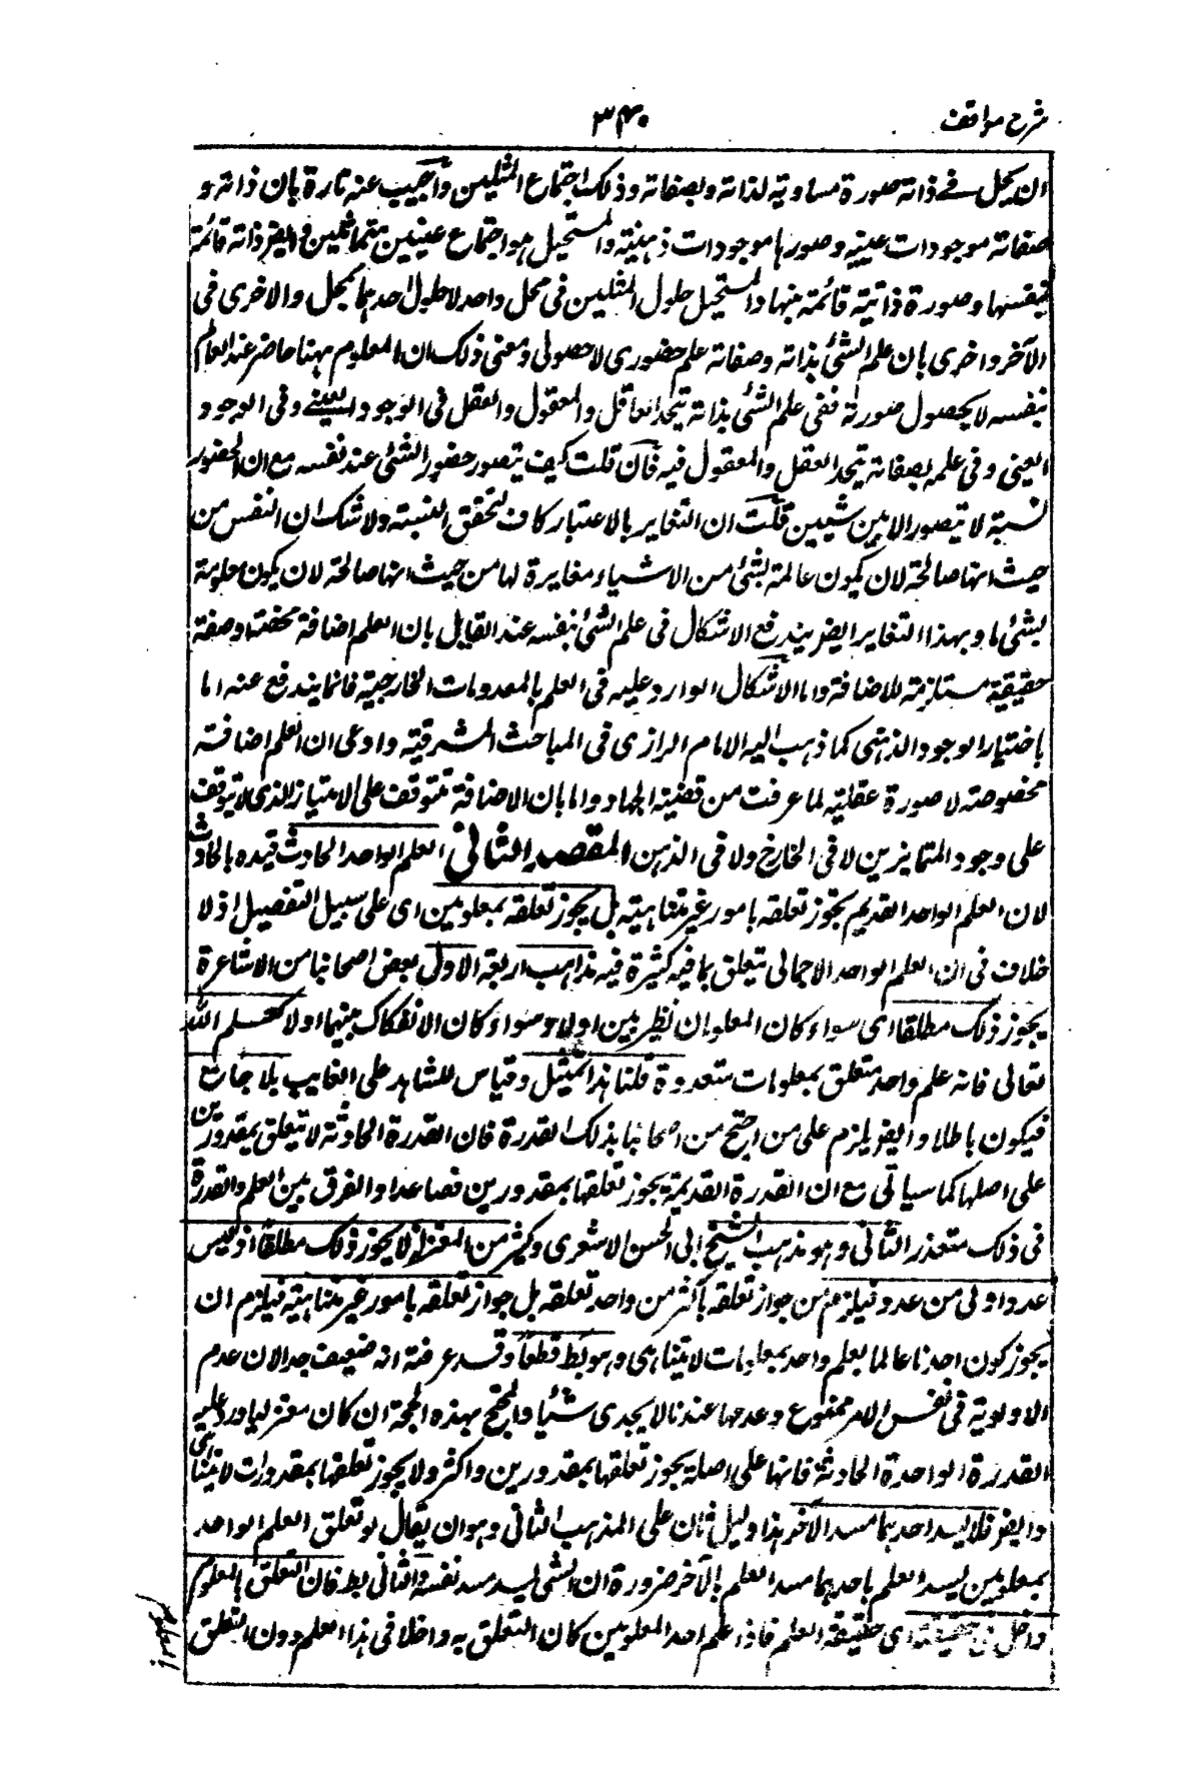 شرح مواقف
٣٤٠
ان يحل في ذاته صورة مساوية لذاته ولصفاته وذلك اجتماع المثلين واجيب عنه تارة بان ذاته و
صفاته موجودات عينية وصورها موجودات ذهنية والمستحيل هو اجتماع عينيين متماثلين وايضا ذاته قائمة
بنفسها وصورة ذاتية قائمة بها والمستحيل حلول المثلين فى محل واحد لا حلول احدهما بمحل والاخرى فى
الآخر واخرى بان علم الشئ بذاته وصفاته علم حضورى لا حصولى ومعنى ذلك ان المعلوم ههنا حاضر عند العالم
بنفسه لا بحصول صورته ففى علم الشئ بذاته يتحد العاقل والمعقول والعقل فى الوجود العينے وفى الوجود
العينى وفى علمه بصفاته يتحد العقل والمعقول فيه فان قلت كيف يتصور حضور الشئ عند نفسه مع ان الحضور
نسبة لا يتصور الا بين شيئين قلت ان التغاير بالاعتبار كاف لتحقق النسبة ولا شك ان النفس من
حيث انها صالحة لان يكون عالمة بشئ من الاشياء مغايرة لها من حيث انها صالحة لان يكون معلومة
لشئ ما وبهذا التغاير ايضا يندفع الاشكال فى علم الشئ بنفسه عند القايل بان العلم اضافة محضة او صفة
حقيقية مستلزمة للاضافة واما الاشكال الوارد عليه فى العلم بالمعدومات الخارجية فانما يندفع عنه اما
باختيار الوجود الذهنى كما ذهب اليه الامام الرازى فى المباحث المشرقية وادعى ان العلم اضافة
مخصوصة لا صورة عقلية لما عرفت من قضية الجماد واما بان الاضافة تتوقف على الامتياز الذى لا يتوقف
على وجود المتمايزين لا فى الخارج ولا فى الذهن المقصد الثانى العلم الواحد الحادث قيده بالحادث
لان العلم الواحد القديم يجوز تعلقه بامور غير متناهية هل يجوز تعلقه بمعلومين اى على سبيل التفصيل اذ لا
خلاف فى ان العلم الواحد الاجمالى يتعلق بما فيه كثيرة فيه مذاهب اربعة الاول لبعض اصحابنا من الاشاعرة
يجوز ذلك مطلقا اى سواء كان المعلومان نظريين اولا وسواء كان الانفكاك بينهما اولا كعلم الله
تعالى فانه علم واحد متعلق بمعلومات متعددة قلنا هذا تمثيل وقياس للشاهد على الغايب بلا جامع
فيكون باطلا وايضا يلزم على من احتج من اصحابنا بذلك القدرة فان القدرة الحادثة لا يتعلق بمقدورين
على اصلها كما سياتى مع ان القدرة القديمة يجوز تعلقها بمقدورين فصاعدا والفرق بين العلم والقدرة
فى ذلك متعذر الثانى وهو مذهب الشيخ ابى الحسن الاشعرى وكثير من المعتزلة لا يجوز ذلك مطلقا اذ ليس
عدد اولى من عدد فيلزم من جواز تعلقه باكثر من واحد تعلقه بل جواز تعلقه بامور غير متناهية فيلزم ان
يجوز كون احدنا عالما بعلم واحد بمعلومات لا يتناهى وهو بط قطعا وقد عرفته انه ضعيف جدا لان عدم
الاولوية فى نفس الامر ممنوع وعدمها عندنا لا يجدى شيئا والمحتج بهذه الحجة ان كان معتزليا ورد عليه
القدرة الواحدة الحادثة فانها على اصله يجوز تعلقها بمقدورين واكثر ولا يجوز تعلقها بمقدورات لا تتناهى
وايضا فلا يسد احدهما مسد الآخر هذا دليل ثان على المذهب الثانى وهو ان يقال لو تعلق العلم الواحد
بمعلومين ليسد العلم باحدهما مسد العلم بالآخر ضرورة ان الشئ ليسد مسد نفسه والثانى بط فان التعلق بالمعلوم
داخل فى حقيقته اى حقيقة العلم فاذا علم احد المعلومين كان التعلق به داخلا فى هذا العلم دون التعلق